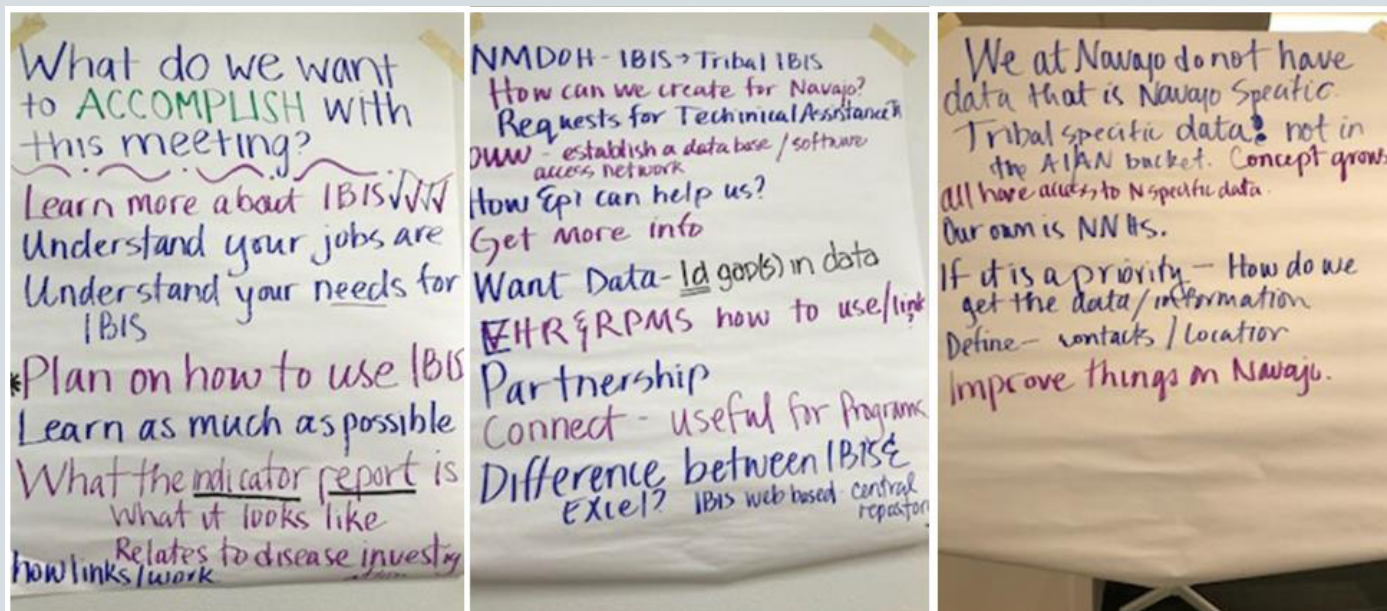 What do we want
to ACCOMPLISH with
this meeting?
Learn more about IBIS✓✓✓✓
Understand your jobs are
Understand your needs for
IBIS
*Plan on how to use IBIS
Learn as much as possible
What the indicator report is
What it looks like
Relates to disease investig
how links/work
NMDOH - IBIS → Tribal IBIS
How can we create for Navajo?
Requests for Techinical Assistance
- establish a data base / software
access network
How Epi can help us?
Get more info
Want Data - Id gap(s) in data
EHR & RPMS how to use/link
Partnership
Connect - useful for Programs
Difference between IBIS &
Excel? IBIS web based - central
repositor
We at Navajo do not have
data that is Navajo Specific.
Tribal specific data! not in
the AIAN bucket. Concept grows
all have access to N specific data.
Our own is NNHS.
If it is a priority - How do we
get the data/information
Define - contacts / Location
Improve things on Navajo.